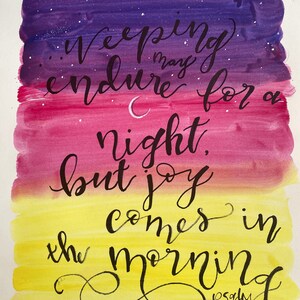 ...weeping
may
endure for a
night,
but joy
comes in
the morning
psalm